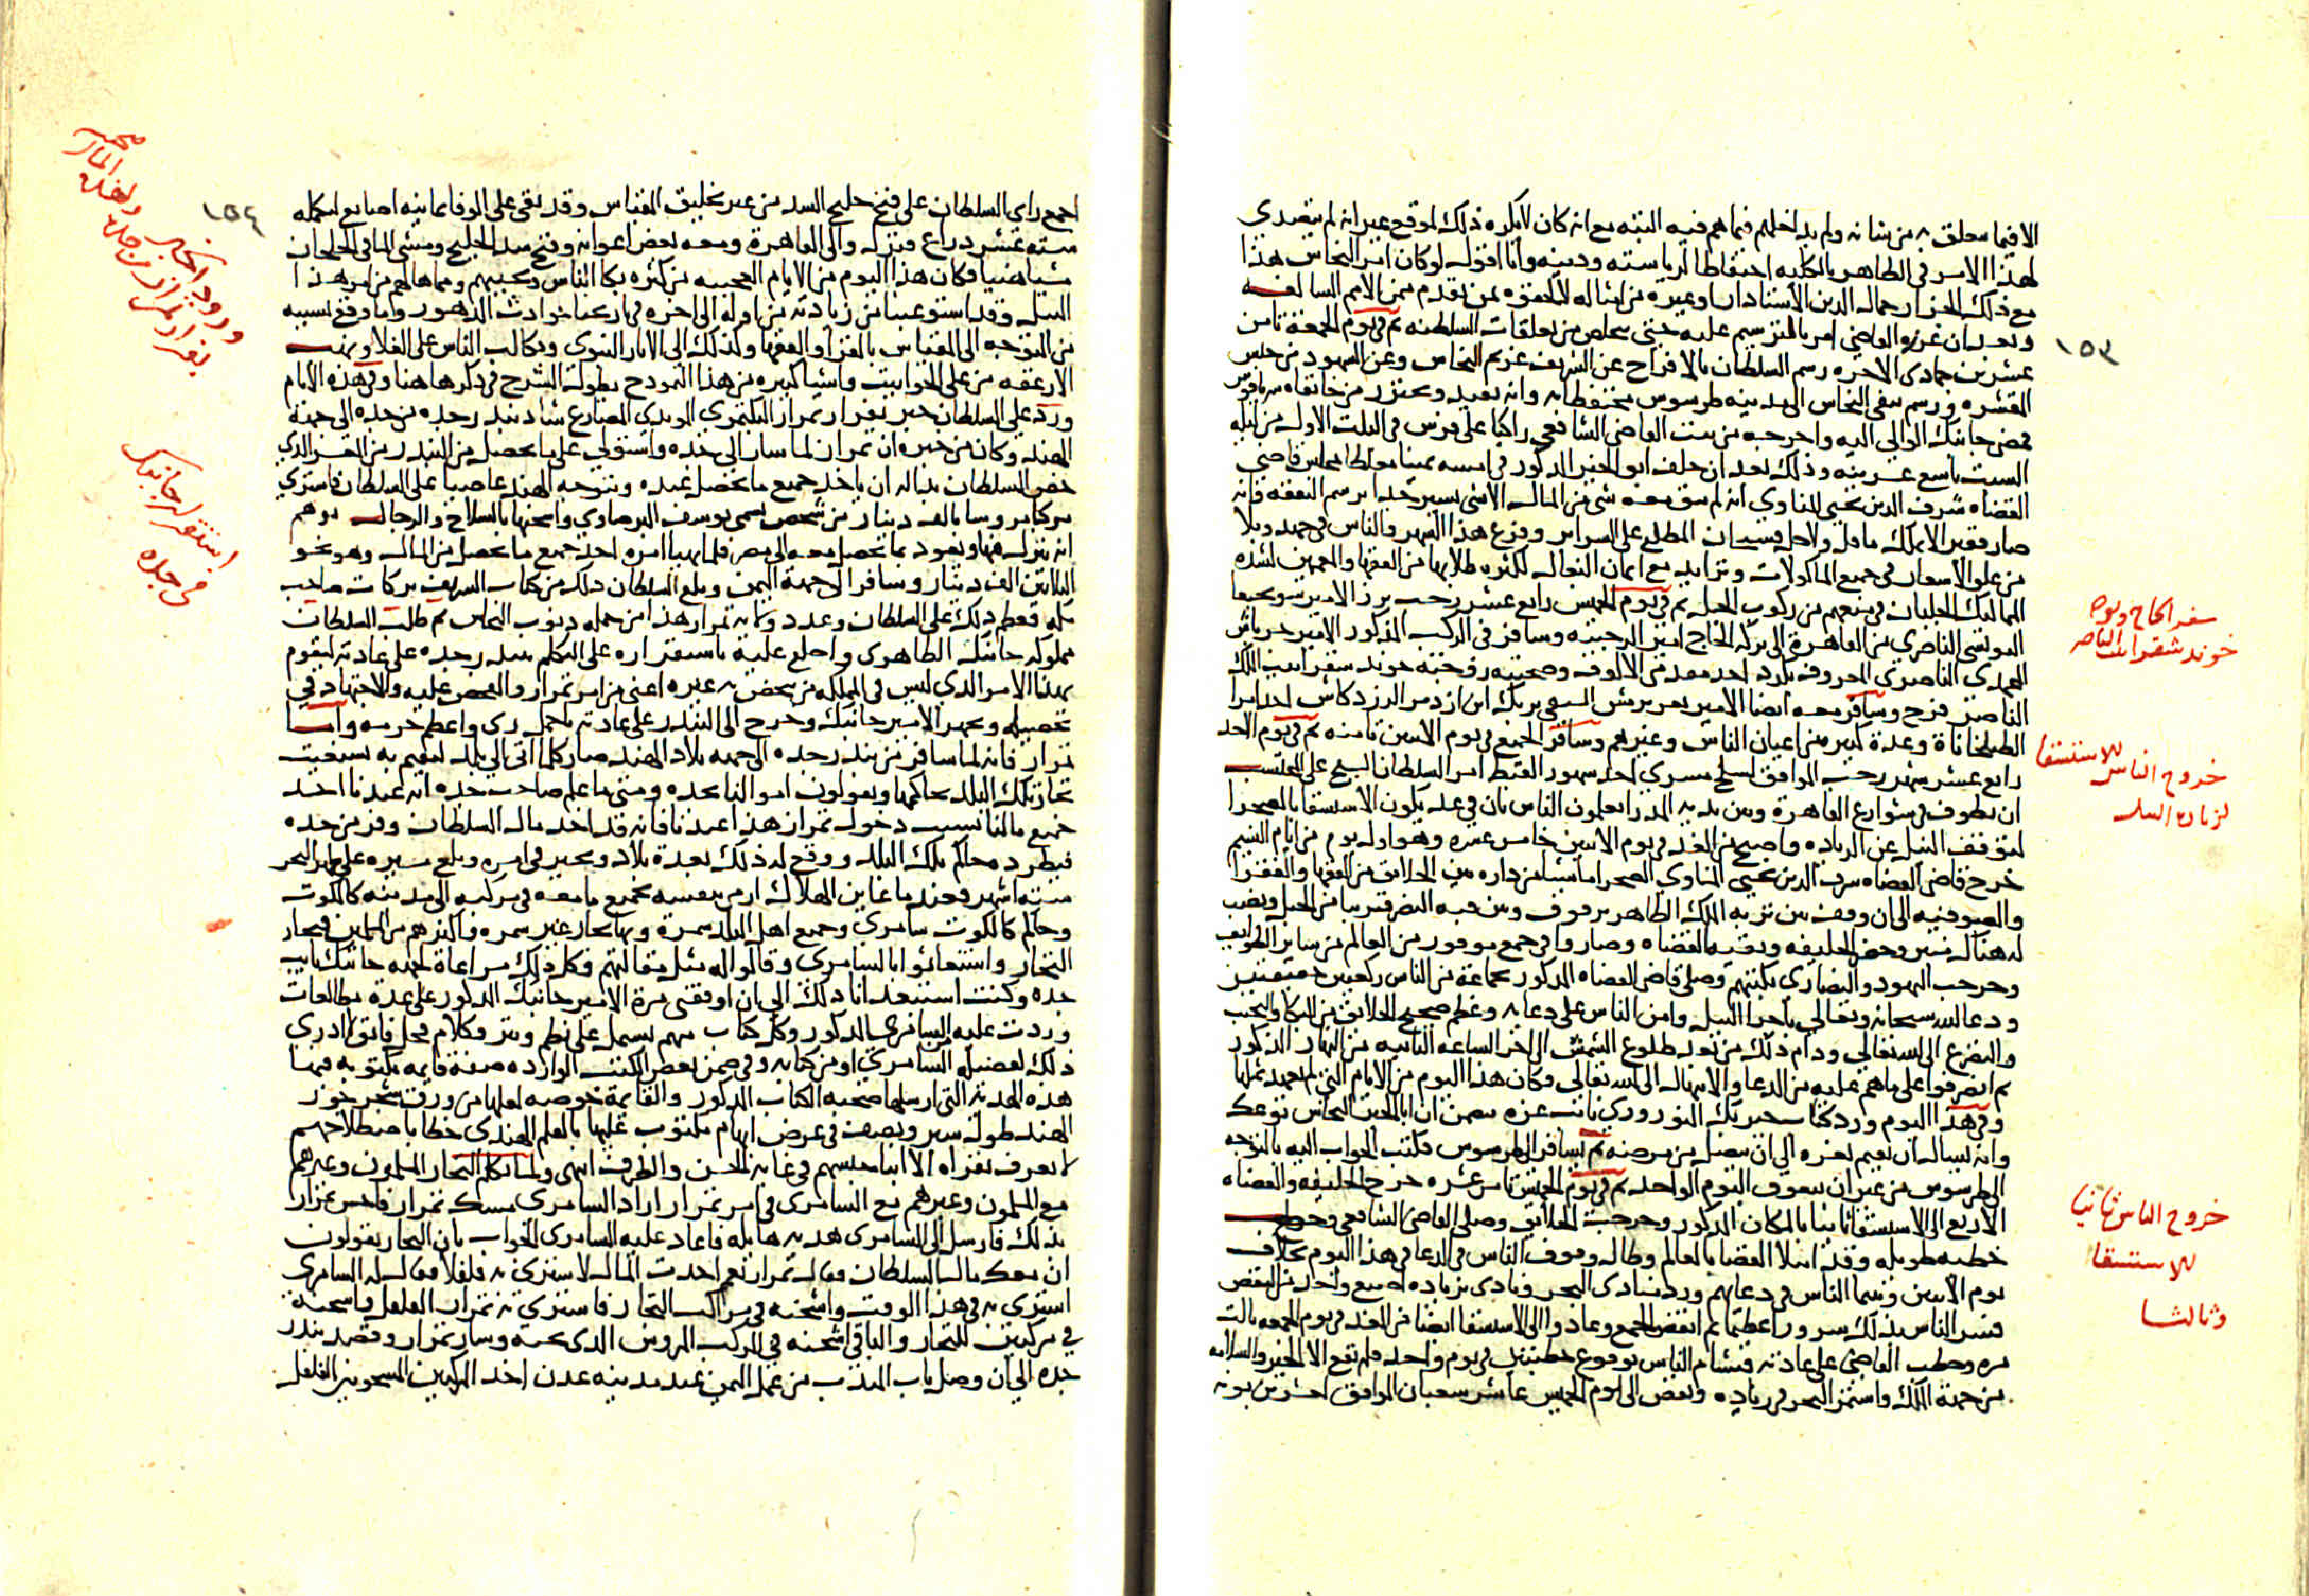 ١٥٣
الا فيما يتعلق به من شانه ولم يداخلهم فيما هم فيه البته مع انه كان لا يكره ذلك لو وقع غير انه لم يتصدى
لهذا الامر في الظاهر بالكليه احتفاظا لرياسته ودينه وانا اقول لو كان امر النحاس هذا
مع ذلك الجزار جمال الدين الاستادار او غيره من امثاله لالحقوه بمن تقدم من الامم السالفه
وبعد ان عزل القاضي امر بالترسيم عليه حتى يخلص من تعلقات السلطنه ثم في يوم الجمعة ثامن
عشرين جمادى الاخره رسم السلطان بالافراج عن الشريف غريم النحاس وعن الشهود من حبس
المقشره ورسم بنفى النحاس الى مدينه طرسوس محتفظا به وانه يقيد ويجنزر من خانقاه سرياقوس
فمضى جانبك الوالى اليه واخرجه من بيت القاضى الشافعى راكبا على فرس فى الثلث الاول من ليله
السبت تاسع عشرينه وذلك بعد ان حلف ابو الخير المذكور فى امسه يمينا مغلظا بمجلس قاضي
القضاه شرف الدين يحيى المناوى انه لم يبق معه شى من المال الا شى يسير جدا برسم النفقه وانه
صار فقيرا لا يملك ما قل ولا جل فسبحان المطلع على السراير وفرغ هذا الشهر والناس فى جهد وبلا
من علو الاسعار فى جميع الماكولات وتزايد مع اثمان البغال لكثره طلابها من الفقها والمتعممين لشده
المماليك الجلبان فى منعهم من ركوب الخيل ثم فى يوم الخميس رابع عشر رجب برز الامير سونجبغا
اليونسى الناصرى من القاهرة الى بركه الحاج امير الرجبيه وسافر فى الركب المذكور الامير جرباش
المحمدى الناصرى المعروف بكرد احد مقدمى الالوف وصحبته زوجته خوند شقرا بنت الملك
الناصر فرج وسافر معه ايضا الامير تغرى برمش السيفى يشبك ابن ازدمر الزردكاش احد امرا
الطبلخاناة وعدة كبير من اعيان الناس وغيرهم وسافر الجميع فى يوم الاثنين ثامنه ثم فى يوم الاحد
رابع عشر شهر رجب الموافق لسلخ مسرى احد شهور القبط امر السلطان الشيخ على المحتسب
ان يطوف فى شوارع القاهرة وبين يديه المدرا يعلمون الناس بان فى غد يكون الاستسقا بالصحرا
لتوقف النيل عن الزياده واصبح من الغد فى يوم الاثنين خامس عشره وهو اول يوم من ايام النسيم
خرج قاضى القضاه شرف الدين يحيى المناوى الى الصحرا ماشيا من داره بين الخلايق من الفقها والفقرا
والصوفيه الى ان وقف بين تربه الملك الظاهر برقوق وبين قبه النصر قريبا من الجبل ونصب
له هناك منبر وحضر الخليفه وبقيه القضاه وصاروا فى جمع موفور من العالم من ساير الطوايف
وخرجت اليهود والنصارى بكتبهم وصلى قاضى القضاه المذكور بجماعة من الناس ركعتين خفيفتين
ودعا الله سبحانه وتعالى باجرا النيل وامن الناس على دعايه وعظم ضجيج الخلايق من البكا والنحيب
والتضرع الى الله تعالى ودام ذلك من بعد طلوع الشمس الى اخر الساعه الثانيه من النهار المذكور
ثم انصرفوا على ما هم عليه من الدعا والابتهال الى الله تعالى وكان هذا اليوم من الايام التى لم نعهد بمثلها
وفى هذا اليوم ورد كتاب خيربك النوروزى نايب غزه يتضمن ان ابا الخير النحاس توعك
وانه يسال ان يقيم بغزه الى ان ينصل من مرضه ثم يسافر الى طرسوس فكتب الجواب اليه بالتوجه
الى طرسوس من غير ان يتعوق اليوم الواحد ثم فى يوم الخميس ثامن عشره خرج الخليفه والقضاه
الاربع الى الاستسقا ثانيا بالمكان المذكور وخرجت الخلايق وصلى القاضى الشافعى وخطب
خطبه طويله وقد امتلا الفضا بالعالم وطال وقوف الناس فى الدعا فى هذا اليوم بخلاف
يوم الاثنين وبينما الناس فى دعايهم ورد منادى البحر ونادى بزياده اصبع واحد من النقص
فسر الناس بذلك سرورا عظيما ثم انفض الجمع وعادوا الى الاستسقا ايضا من الغد فى يوم الجمعه ثالث
مره وخطب القاضى على عادته فتشام الناس بوقوع خطبتين فى يوم واحد فلم يقع الا الخير والسلامه
من جهة الملك واستمر البحر فى زياده ونقص الى يوم الخميس عاشر شعبان الموافق لعشرين بونه
سفر الحاج وتوجه
خوند شقرا بنت الناصر
خروج الناس للاستسقا
لزياده النيل
خروج الناس ثانيا
للاستسقا
وثالثا
١٥٤
اجمع راى السلطان على فتح خليج السد من غير تخليق المقياس وقد بقى على الوفا ثمانيه اصابع لتكمله
سته عشر دراع فنزل والى القاهرة ومعه بعض اعوانه وفتح سد الخليج ومشى الما فى الخلجان
مشيا هينا فكان هذا اليوم من الايام العجيبه من كثره بكا الناس ونحيبهم ومما هالهم من امر هذا
النيل وقد استوعبنا من زيادته من اوله الى اخره فى تاريخنا حوادث الدهور وما وقع بسببه
من التوجه الى المقياس بالقرا والفقها وكذلك الى الاثار النبوى وتكالب الناس على الغلا ونهب
الارغفه من على الحوانيت واشيا كثيره من هذا النموذج يطول الشرح فى ذكرها هنا وفى هذه الايام
ورد على السلطان خبر بفرار تمراز البكتمرى المويدى المصارع شاد بندر جده من جده الى جهة
الهند وكان من خبره ان تمراز لما سار الى جده واستولى على ما يحصل من البندر من العشر الذى
خص السلطان بدا له ان ياخذ جميع ما تحصل عنده ويتوجه الهند عاصيا على السلطان فاشترى
مركبا مروسا بالف دينار من شخص يسمى يوسف البرصاوى واشحنها بالسلاح والرجال يوهم
انه ينزل فيها ويعود بما تحصل معه الى مصر فلما تهيا امره اخذ جميع ما تحصل من المال وهو نحو
الثلاثين الف دينار وسافر الى جهة اليمن وبلغ السلطان ذلك من كتاب الشريف بركات صاحب
مكه فعظم ذلك على السلطان وعدد ولاية تمراز هذا من جمله ذنوب النحاس ثم طلب السلطان
مملوكه جانبك الظاهرى واخلع عليه باستقراره على التكلم ببندر جده على عادته ليقوم
بهذا الامر الذى ليس فى المملكه من ينهض به غيره اعنى من امر تمراز والفحص عليه والاجتهاد فى
تحصيله وتجهز الامير جانبك وخرج الى البندر على عادته باجمل زى واعظم حرمه واما
تمراز فانه لما سافر من بندر جده الى جهه بلاد الهند صار كلما اتى الى بلد ليقيم به يستغيث
تجار تلك البلد بحاكمها ويقولون اموالنا بجده ومتى ما علم صاحب جده انه عندنا اخذ
جميع مالنا بسبب دخول تمراز هذا عندنا فانه قد اخذ مال السلطان وفر من جده
فيطرده حاكم تلك البلد ووقع له ذلك بعدة بلاد وتحير فى امره وبلغ مسيره على ظهر البحر
سته اشهر فعند ما عاين الهلاك ارمى بنفسه بجميع ما معه فى مركبه الى مدينه كالكوت
وحاكم كالكوت سامرى وجميع اهل البلد سمرة وبها تجار غير سمره واكثرهم من المسلمين فجار
التجار واستغاثوا بالسامرى وقالوا له مثل مقالتهم وكل ذلك مراعاة لجهه جانبك نايب
جده وكنت استبعد انا ذلك الى ان اوقفنى مرة الامير جانبك المذكور على عدة مطالعات
وردت عليه من السامرى المذكور وكل كتاب منهم يشتمل على نظم ونثر وكلام فحل فايق لا ادرى
ذلك لفضيله السامرى او من كتابه وفى ضمن بعض الكتب الوارده صفة قايمه مكتوبه فيها
هذه الهديه التى ارسلها صحبه الكتاب المذكور والقايمة خوصه لعلها من ورق شجر جوز
الهند طوله شبر ونصف فى عرض ابهام مكتوب عليها بالقلم الهندى خطا باصطلاحهم
لا يعرف يقراه الا ابنا جنسهم فى غاية الحسن والظرف انتهى ولما تكلم التجار المسلمون وغيرهم
مع المسلمون وغيرهم مع السامرى فى امر تمراز اراد السامرى مسك تمراز فاحس تمراز
بذلك فارسل الى السامرى هديه هايله فاعاد عليه السامرى الجواب بان التجار يقولون
ان معك مال السلطان فقال تمراز نعم اخذت المال لاشترى به فلفلا فقال له السامرى
اشترى به فى هذا الوقت واشحنه فى مراكب التجار فاشترى به تمراز الفلفل واشحنه
فى مركبين للتجار والباقى اشحنه فى المركب المروس الذى تحته وسار تمراز وقصد بندر
جده الى ان وصل باب المندب من عمل اليمن عند مدينه عدن اخذ المركبين المشحونين الفلفل
ورود الخبر
بفرار تمراز من جده
واخذه المال
استقرار جانبك
فى جده